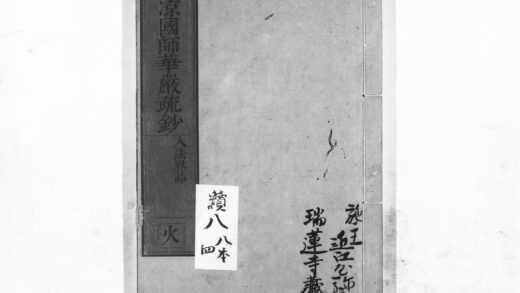 涼國師華嚴疏鈔
入法界品
火
續八
八本
四
施主
近江公弥
瑞蓮寺藏